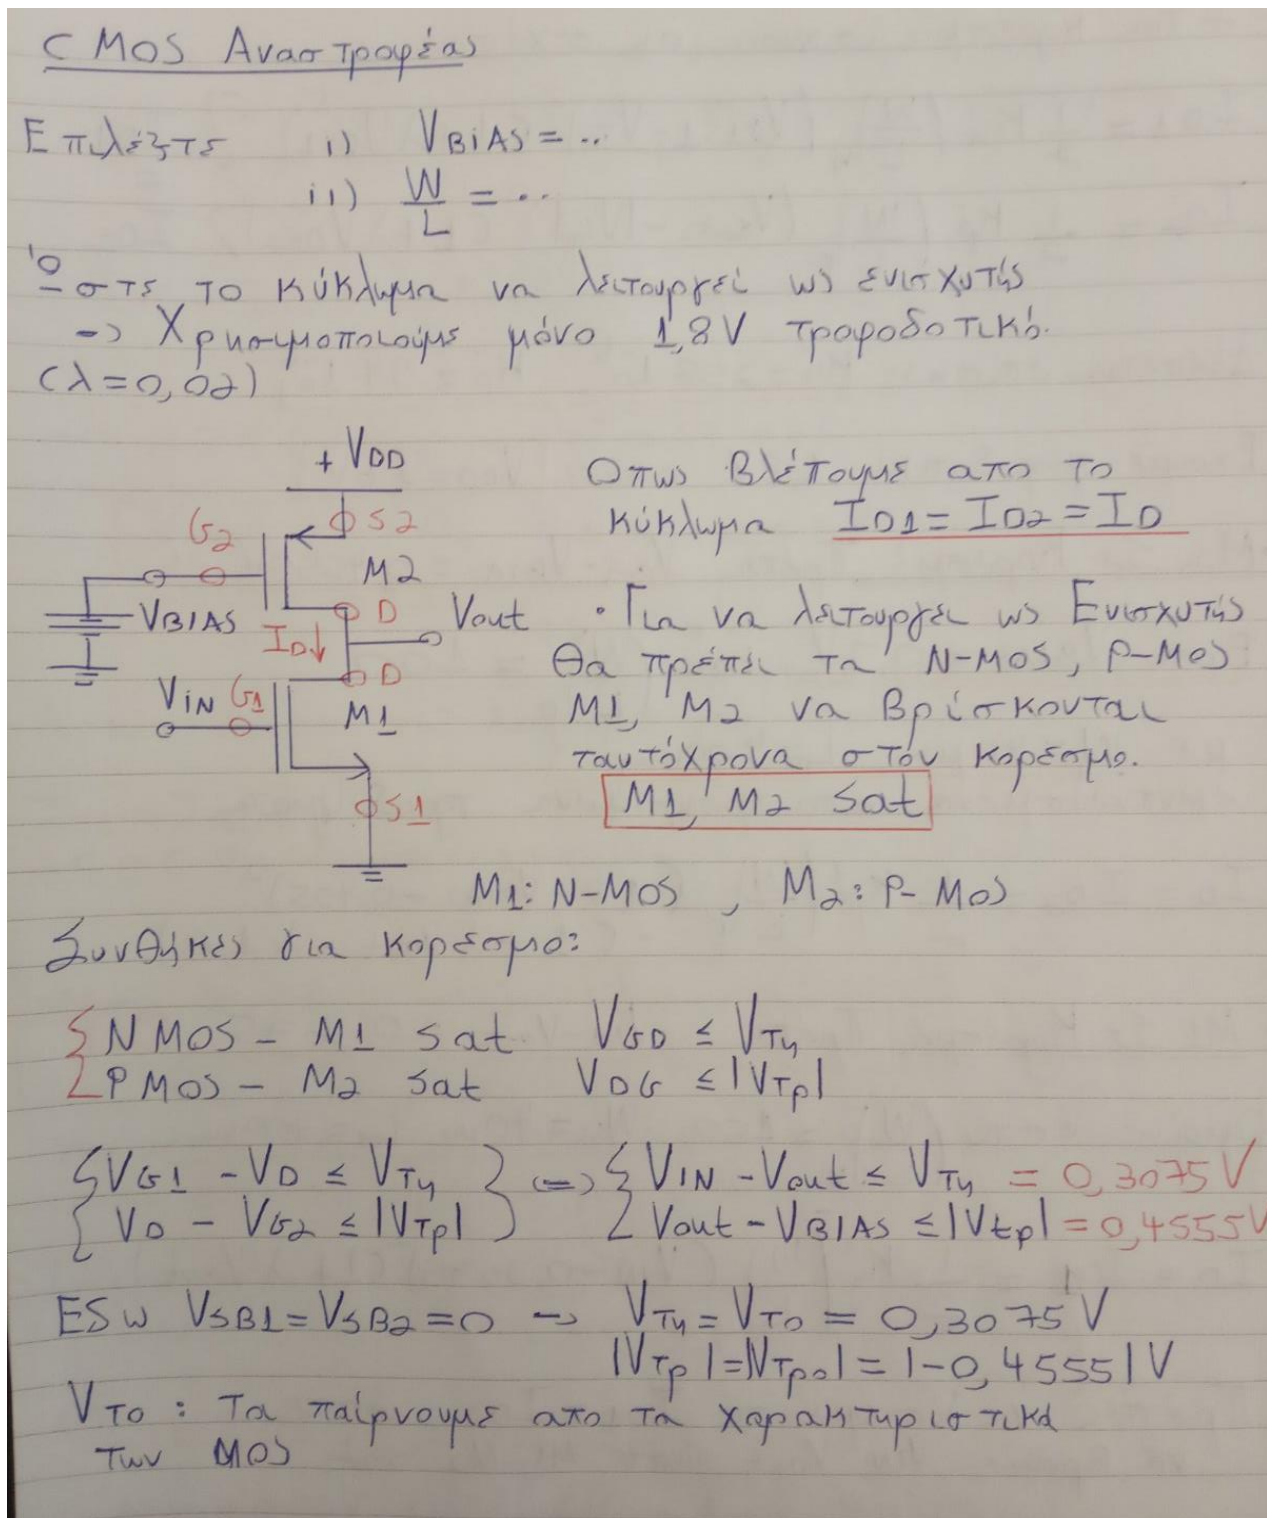 CMOS Αναστροφέας
Επιλέξτε i) VBIAS = ..
ii) W/L = ..
Ώστε το κύκλωμα να λειτουργεί ως ενισχυτής
-> Χρησιμοποιούμε μόνο 1,8V τροφοδοτικό.
(λ=0,02)
+VDD
G2
S2
M2
D
VBIAS
Vout
ID↓
D
VIN
G1
M1
S1
Οπως βλέπουμε απο το
κύκλωμα ID1 = ID2 = ID
• Για να λειτουργει ως Ενισχυτής
θα πρέπει τα N-MOS, P-MOS
M1, M2 να βρίσκονται
ταυτόχρονα στόν κορεσμο.
M1, M2 sat
M1: N-MOS , M2: P-MOS
Συνθήκες για κορεσμο:
{NMOS - M1 sat VGD ≤ VTη
PMOS - M2 sat VDG ≤ |VTp|
{VG1 - VD ≤ VTη } <=> {VIN - Vout ≤ VTη = 0,3075V
{VD - VG2 ≤ |VTp| } {Vout - VBIAS ≤ |Vtp| = 0,4555V
Εδω VSB1 = VSB2 = 0 -> VTη = VTO = 0,3075V
|VTp| = |VTpo| = |-0,4555|V
VTO : Τα παίρνουμε απο τα χαρακτηριστικά
των MOS